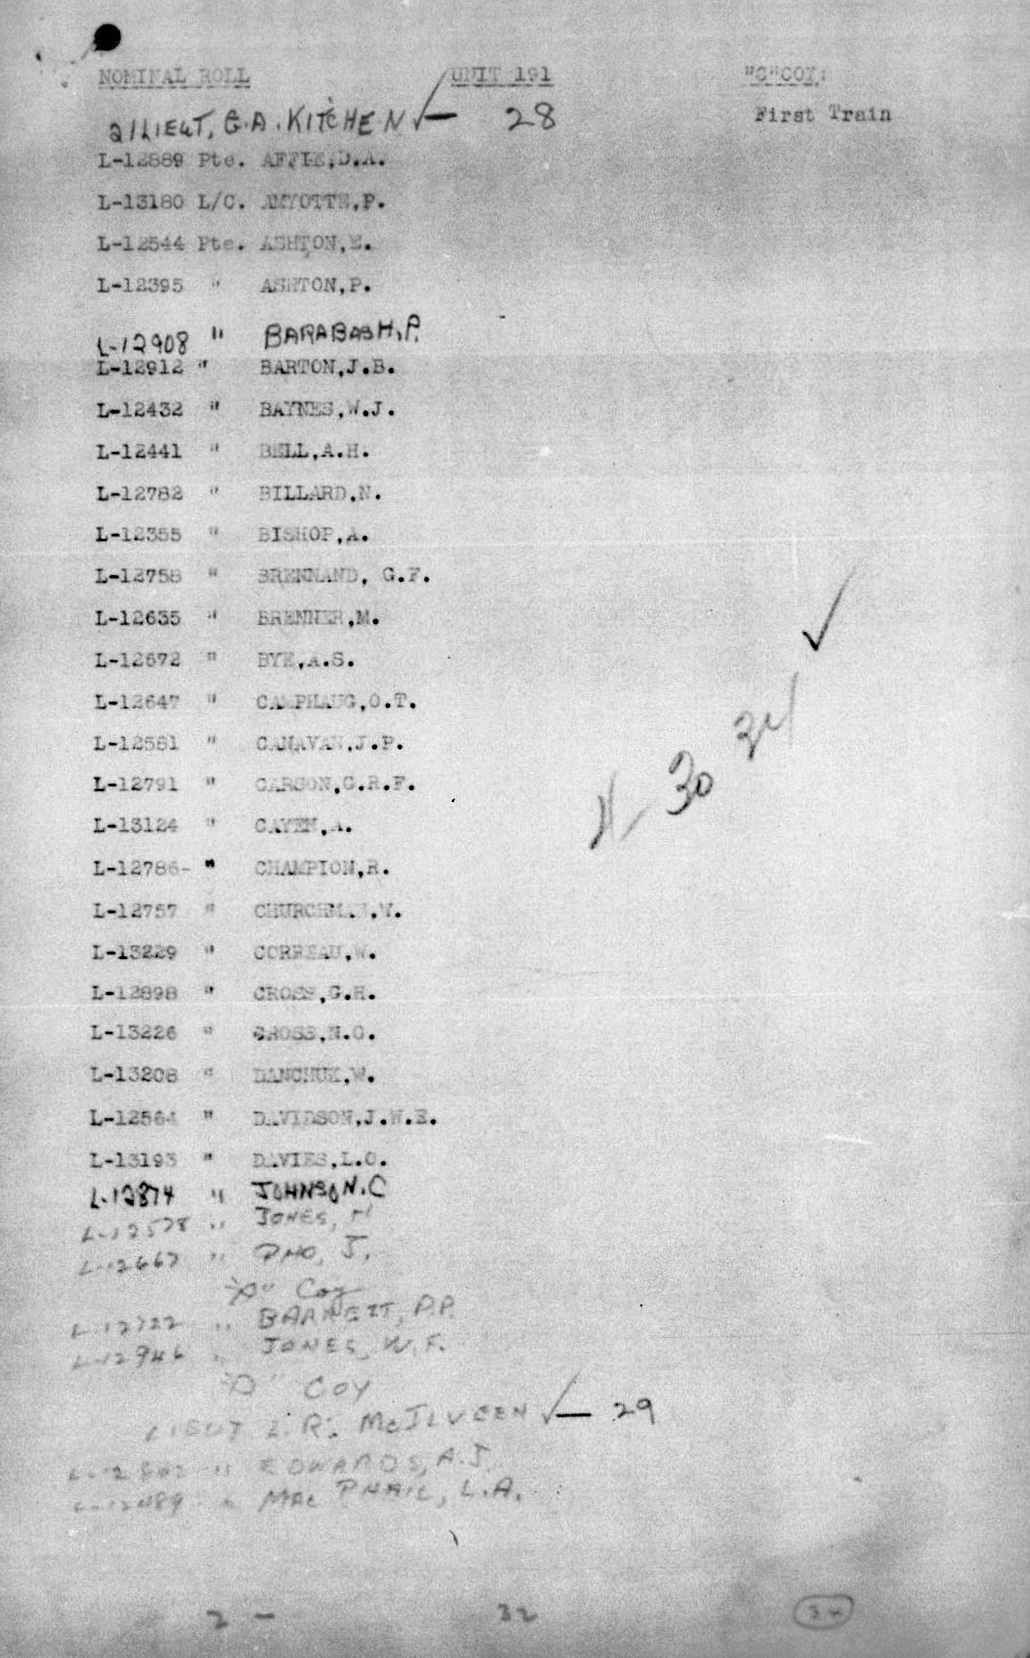 NOMINAL ROLL UNIT 191 "C"COY:
First Train
2/LIEUT, G.A. KITCHEN ✓— 28
L-12889 Pte. AFFIE,D.A.
L-13180 L/C. AMYOTTE,P.
L-12544 Pte. ASHTON,E.
L-12395 " ASHTON,P.
L-12908 " BARABASH,P.
L-12912 " BARTON,J.B.
L-12432 " BAYNES,W.J.
L-12441 " BELL,A.H.
L-12782 " BILLARD,N.
L-12355 " BISHOP,A.
L-12758 " BRENNAND, G.F.
L-12635 " BRENNER,M.
L-12672 " BYE,A.S.
L-12647 " CAMPHAUG,O.T.
L-12581 " CANAVAN,J.P.
L-12791 " CARSON,G.R.F.
L-13124 " CAYEN,A.
L-12786- " CHAMPION,R.
L-12757 " CHURCHMAN,W.
L-13229 " CORREAU,W.
L-12898 " CROSS,G.H.
L-13226 " CROSS,N.G.
L-13208 " DANCHUK,W.
L-12564 " DAVIDSON,J.W.E.
L-13193 " DAVIES,L.O.
L-12874 " JOHNSON.C
L-12578 " JONES,
L-12667 " PHO, J.
Coy
L-12722 " BARNETT, P.P.
L-12946 " JONES, W.F.
"D" COY
LIEUT L.R. McILVEEN ✓— 29
" EDWARDS, A.J.
L-12489 " MacPHAIL, L.A.
✓
30 34
2 - 32 34